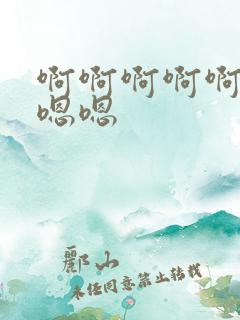 啊啊啊啊啊
嗯嗯
郦山
未任同意禁止转载